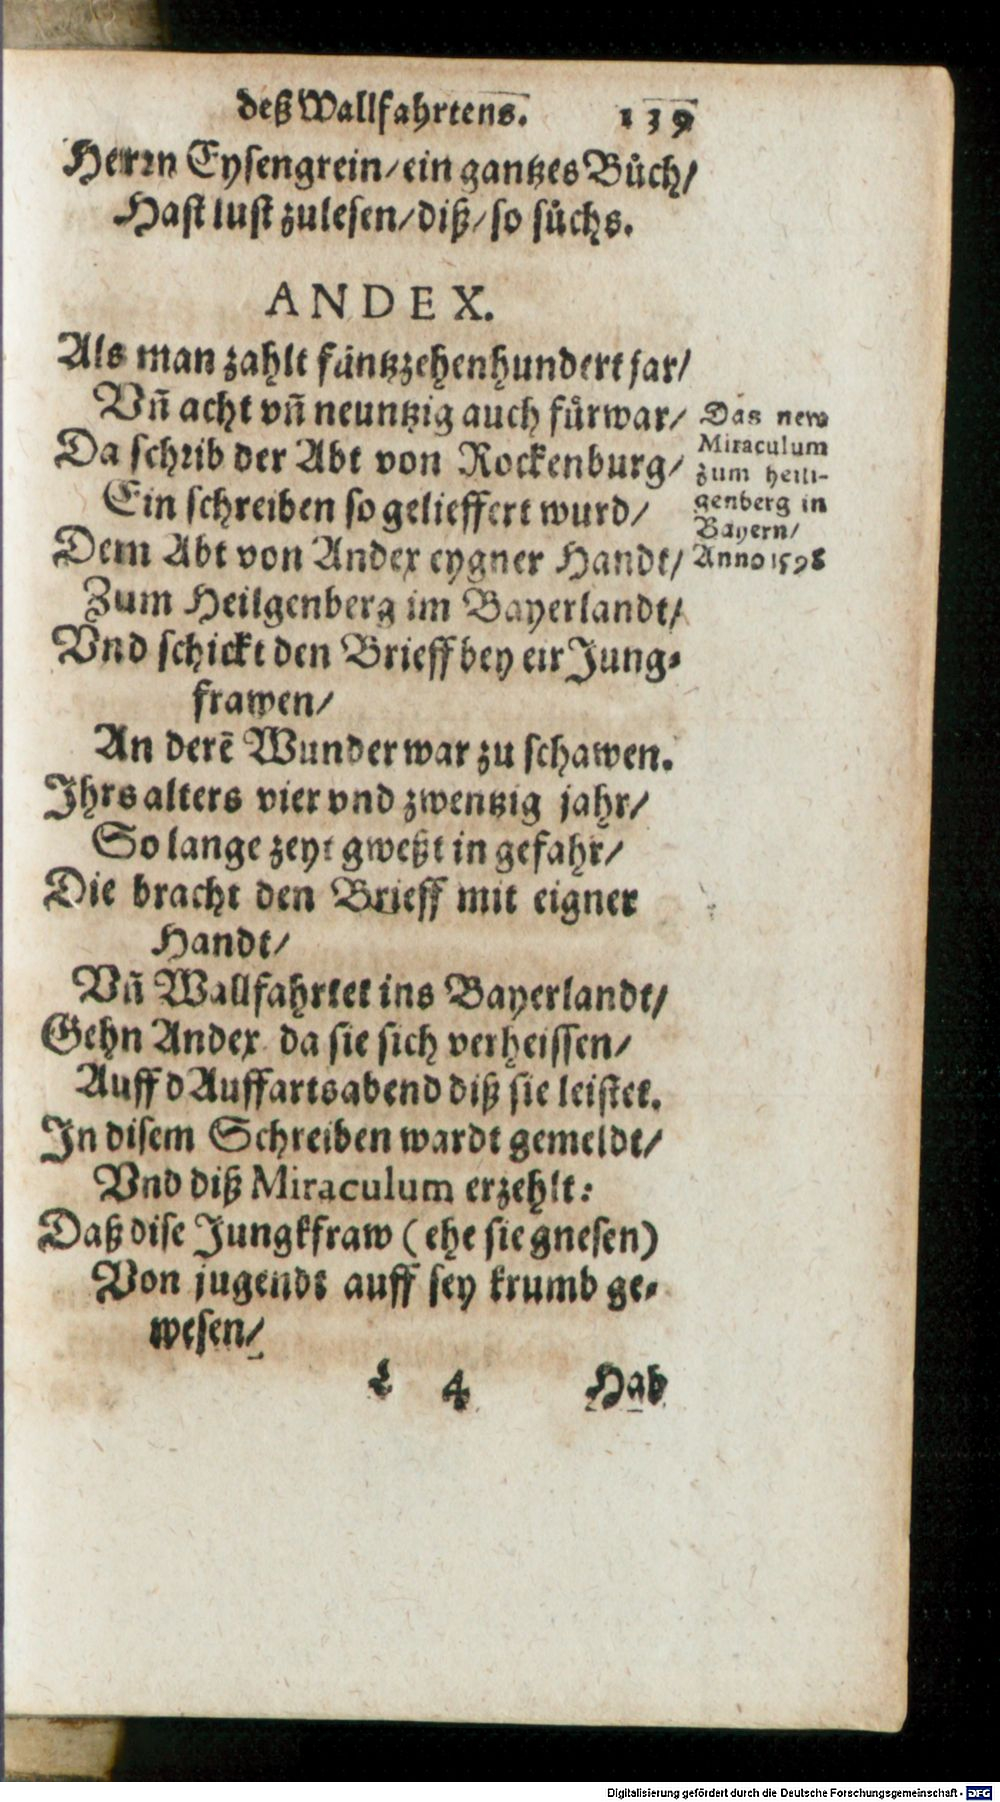 deß Wallfahrtens. 139
Herrn Eysengrein/ ein gantzes Bůch/
Hast lust zulesen/ diß/ so sůchs.
ANDEX.
Als man zahlt füntzzehenhundert jar/
Vñ acht vñ neuntzig auch fürwar/
Da schrib der Abt von Rockenburg/
Ein schreiben so gelieffert wurd/
Dem Abt von Andex eygner Handt/
Zum Heilgenberg im Bayerlandt/
Vnd schickt den Brieff bey eir Jung-
frawen/
An derē Wunder war zu schawen.
Ihrs alters vier vnd zwentzig jahr/
So lange zeyt gweßt in gefahr/
Die bracht den Brieff mit eigner
Handt/
Vñ Wallfahrtet ins Bayerlandt/
Gehn Andex da sie sich verheissen/
Auff d Auffartsabend diß sie leistet.
In disem Schreiben wardt gemeldt/
Vnd diß Miraculum erzehlt:
Daß dise Jungkfraw (ehe sie gnesen)
Von jugendt auff sey krumb ge-
wesen/
L 4 Hab
Das new
Miraculum
zum heili-
genberg in
Bayern/
Anno 1598
Digitalisierung gefördert durch die Deutsche Forschungsgemeinschaft - DFG